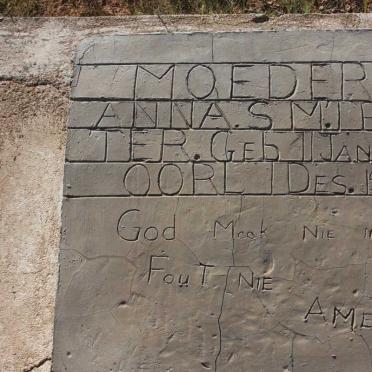 MOEDER
ANNA.S M.
TER. Geb 1 JAN
OORL 1 DES.
God Maak NIE
Fout NIE
AME